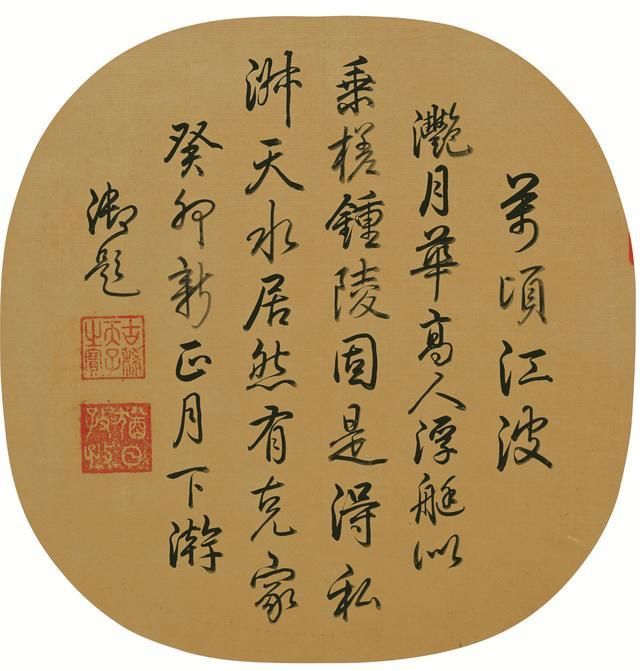 萬頃江波
灧月華高人浮艇似
乘槎鍾陵固是得私
淑天水居然有克家
癸卯新正月下澣
御題
古稀天子之寶
猶日孜孜